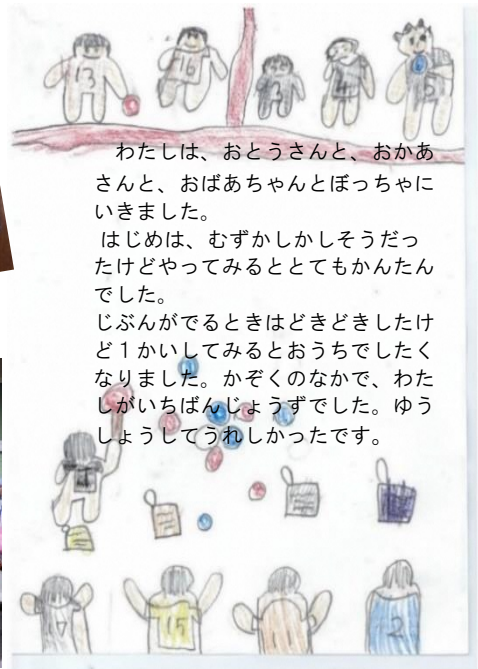 13
16
3
4
5
わたしは、おとうさんと、おかあ
さんと、おばあちゃんとぼっちゃに
いきました。
はじめは、むずかしかしそうだっ
たけどやってみるととてもかんたん
でした。
じぶんがでるときはどきどきしたけ
ど１かいしてみるとおうちでしたく
なりました。かぞくのなかで、わた
しがいちばんじょうずでした。ゆう
しょうしてうれしかったです。
7
15
1
2